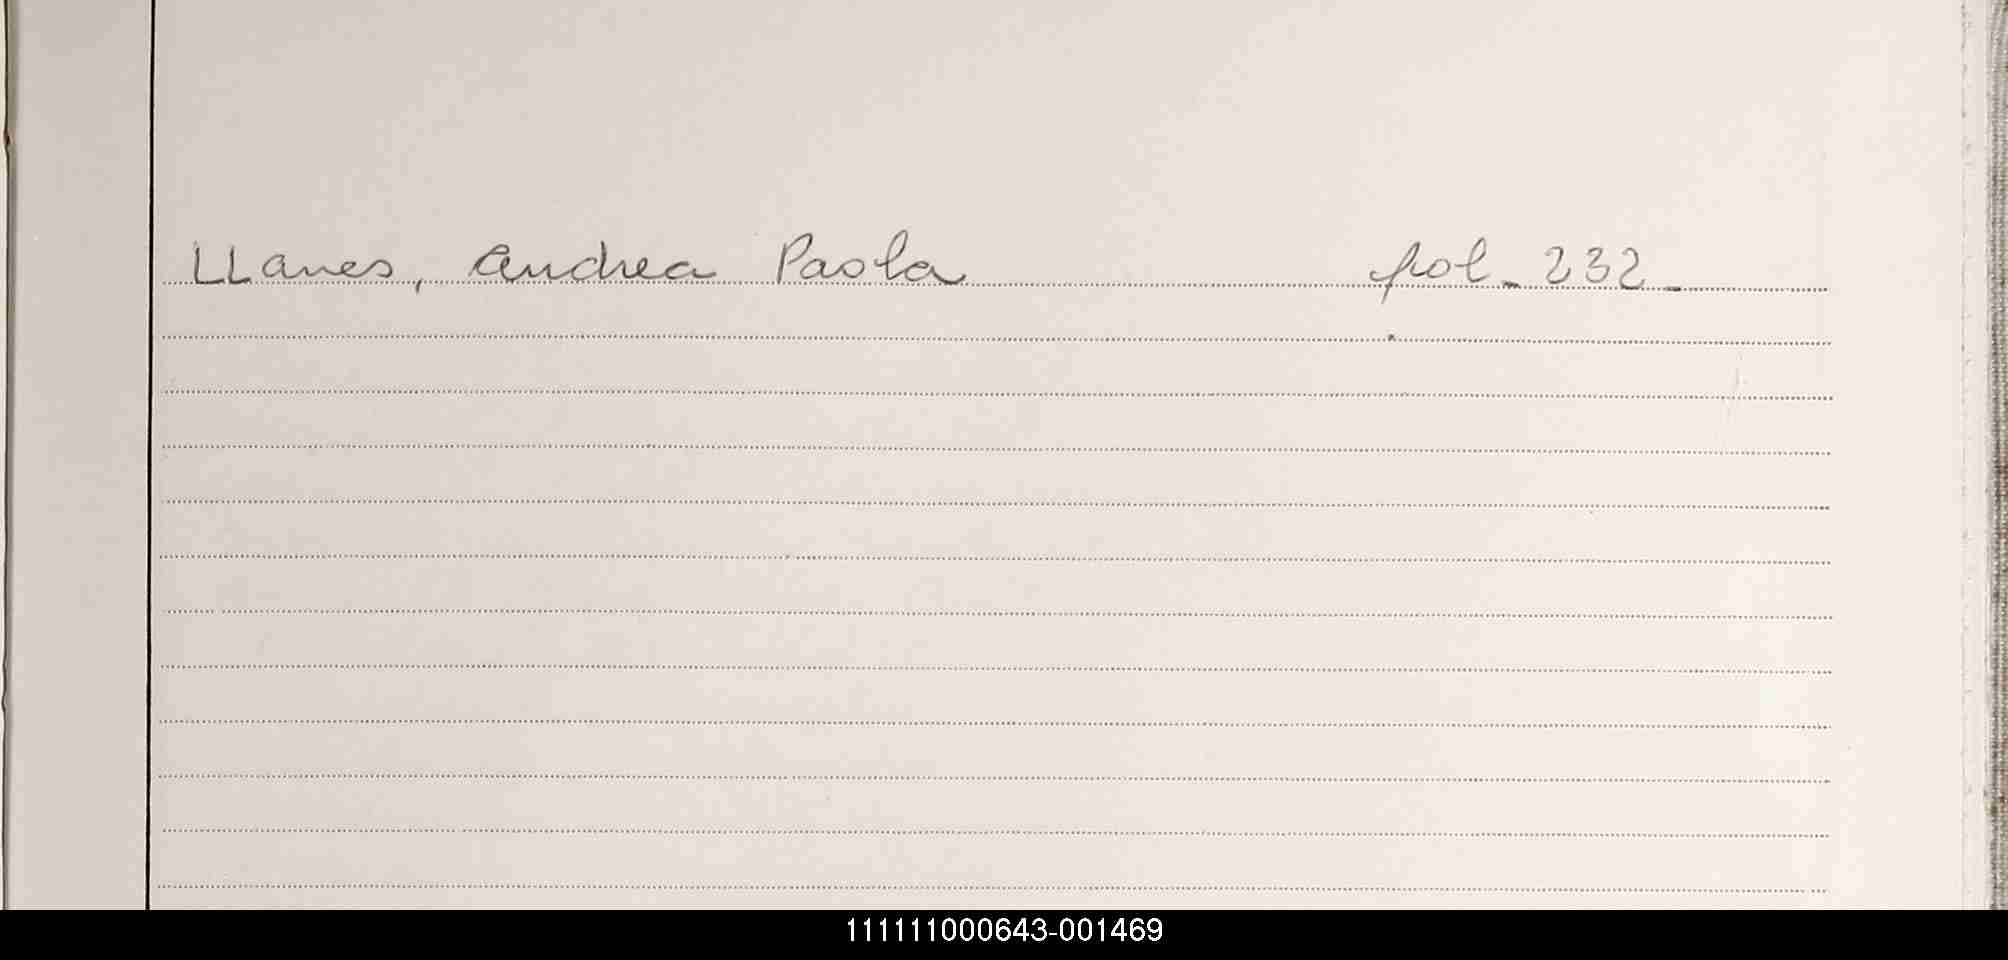 LLanes, Andrea Paola fol_ 232_
111111000643-001469